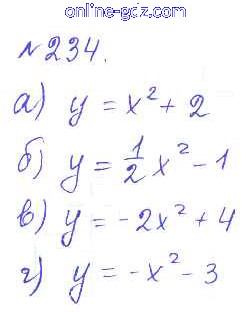 online-gdz.com
№234.
а) y = x² + 2
б) y = 1/2 x² - 1
в) y = -2x² + 4
г) y = -x² - 3